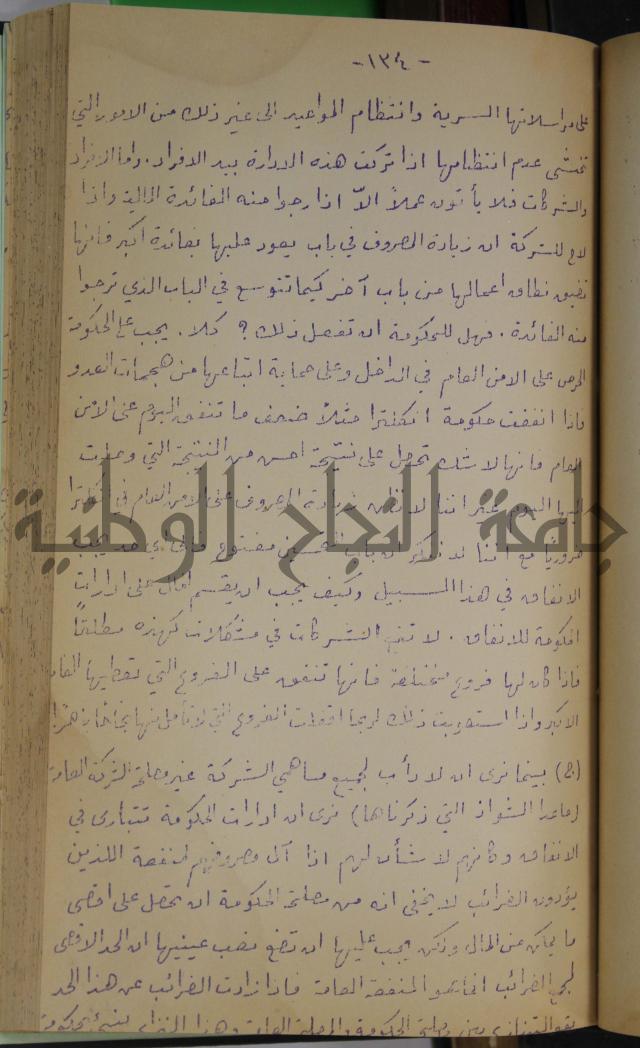 -١٣٤-
على مراسلاتها السرية وانتظام المواعيد الى غير ذلك من الامور التي
تخشى عدم انتظامها اذا تركت هذه الادارة بيد الافراد. واما الافراد
والشركات فلا يأتون عملاً الاّ اذا رجوا منه الفائدة المالية واذا
لاح للشركة ان زيادة المصروف في باب يعود عليها بفائدة اكبر فانها
تضيق نطاق اعمالها من باب آخر كيما تتوسع في الباب الذي ترجوا
منه الفائدة. فهل للحكومة ان تفعل ذلك؟ كلا. يجب على الحكومة
الحرص على الامن العام في الداخل وعلى حماية اتباعها من هجمات العدو
فاذا انفقت حكومة انكلترا مثلاً ضعف ما تنفق اليوم على الامن
العام فانها لا شك تحصل على نتيجة احسن من النتيجة التي وصلت
اليها اليوم غير اننا لا نظن زيادة المصروف على الامن العام في انكلترا
ضرورياً مع اننا لا ننكر ان باب التحسين مفتوح فالى اي حد يجب
الانفاق في هذا السبيل وكيف يجب ان يقسم المال على ادارات
الحكومة للانفاق. لا تقع الشركات في مشكلات كهذه مطلقاً
فاذا كان لها فروع مختلفة فانها تنفق على الفروع التي تعطيها الفائدة
الاكبر واذا استصوبت ذلك لربما اقفلت الفروع التي لا تأمل منها نجاحاً زاهراً
(ج) بينما نرى ان لا دأب لجميع مساهمي الشركة غير مصلحة الشركة العامة
(ما عدا الشواذ التي ذكرناها) نرى ان ادارات الحكومة تتبارى في
الانفاق وكأنهم لا شأن لهم اذا آل مصروفهم لمنفعة اللذين
يؤدون الضرائب لا يخفى انه من مصلحة الحكومة ان تحصل على اقصى
ما يمكن من المال ولكن يجب عليها ان تضع نصب عينيها ان الحد الاقصى
لجمع الضرائب انما هو المنفعة العامة فاذا زادت الضرائب عن هذا الحد
يقع التنازع بين مصلحة الحكومة والمصلحة العامة وهذا النزاع